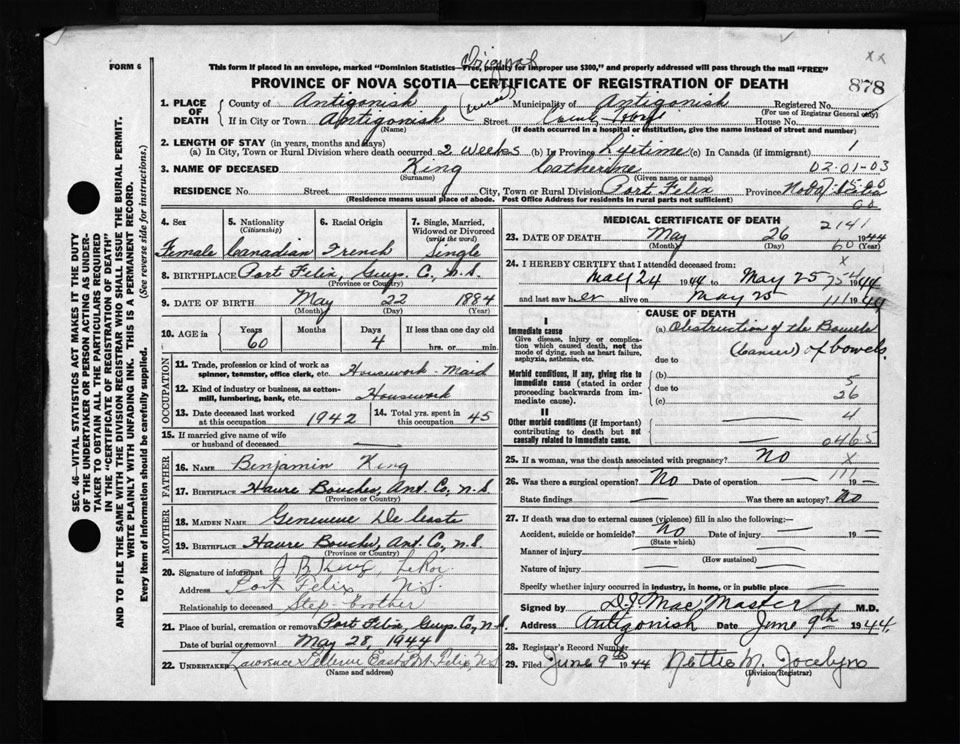 FORM 6
Original
This form if placed in an envelope, marked "Dominion Statistics—Free, penalty for improper use $300," and properly addressed will pass through the mail "FREE"
xx
PROVINCE OF NOVA SCOTIA—CERTIFICATE OF REGISTRATION OF DEATH
878
1. PLACE OF DEATH
County of Antigonish (rural) Municipality of Antigonish Registered No.
(For use of Registrar General only)
If in City or Town Antigonish Street House No.
(Name) (If death occurred in a hospital or institution, give the name instead of street and number)
2. LENGTH OF STAY (in years, months and days)
(a) In City, Town or Rural Division where death occurred 2 weeks (b) In Province Lifetime (c) In Canada (if immigrant) 1
3. NAME OF DECEASED King Catherine 02-01-03
(Surname) (Given name or names)
RESIDENCE No. Street City, Town or Rural Division Port Felix Province
(Residence means usual place of abode. Post Office Address for residents in rural parts not sufficient)
4. Sex 5. Nationality (Citizenship) 6. Racial Origin 7. Single, Married, Widowed or Divorced (write the word)
Female Canadian French Single
8. BIRTHPLACE Port Felix, Guys. Co, N.S.
(Province or Country)
9. DATE OF BIRTH May 22 1884
(Month) (Day) (Year)
10. AGE in Years Months Days If less than one day old
60 4 hrs. or min.
OCCUPATION
11. Trade, profession or kind of work as spinner, teamster, office clerk, etc. Housework - Maid
12. Kind of industry or business, as cotton-mill, lumbering, bank, etc. Housework
13. Date deceased last worked at this occupation 1942 14. Total yrs. spent in this occupation 45
15. If married give name of wife or husband of deceased —
FATHER
16. NAME Benjamin King
17. BIRTHPLACE Havre Boucher, Ant. Co, N.S.
(Province or Country)
MOTHER
18. MAIDEN NAME Genevieve
19. BIRTHPLACE Havre Boucher, Ant. Co, N.S.
(Province or Country)
20. Signature of informant
Address Port Felix N.S.
Relationship to deceased Step-brother
21. Place of burial, cremation or removal Port Felix, Guys. Co, N.S.
Date of burial or removal May 28, 1944
22. UNDERTAKER Lawrence East Pt Felix, N.S.
(Name and address)
MEDICAL CERTIFICATE OF DEATH
2141
23. DATE OF DEATH May 26 1944
(Month) (Day) 60 (Year)
24. I HEREBY CERTIFY that I attended deceased from: x
May 24 1944 to May 25 1944
and last saw her alive on May 25 1944
CAUSE OF DEATH
I
Immediate cause
Give disease, injury or complication which caused death, not the mode of dying, such as heart failure, asphyxia, asthenia, etc.
(a) Obstruction of the Bowels
due to (Cancer) of bowels.
Morbid conditions, if any, giving rise to immediate cause (stated in order proceeding backwards from immediate cause).
(b) 5
due to 26
(c)
II
Other morbid conditions (if important) contributing to death but not causally related to immediate cause.
4
0465
25. If a woman, was the death associated with pregnancy? No x
26. Was there a surgical operation? No Date of operation — 111 19 —
State findings — Was there an autopsy? No
27. If death was due to external causes (violence) fill in also the following:—
Accident, suicide or homicide? No Date of injury — 19 —
(State which)
Manner of injury —
(How sustained)
Nature of injury —
Specify whether injury occurred in industry, in home, or in public place
Signed by D J MacMaster M.D.
Address Antigonish Date June 9th 1944
28. Registrar's Record Number
29. Filed June 9th 1944 Nettie M. Jocelyn
(Division Registrar)
SEC. 46—VITAL STATISTICS ACT MAKES IT THE DUTY
OF THE UNDERTAKER OR PERSON ACTING AS UNDER-
TAKER TO OBTAIN ALL THE PARTICULARS REQUIRED
IN THE "CERTIFICATE OF REGISTRATION OF DEATH"
AND TO FILE THE SAME WITH THE DIVISION REGISTRAR WHO SHALL ISSUE THE BURIAL PERMIT.
WRITE PLAINLY WITH UNFADING INK. THIS IS A PERMANENT RECORD.
Every item of information should be carefully supplied. (See reverse side for instructions.)